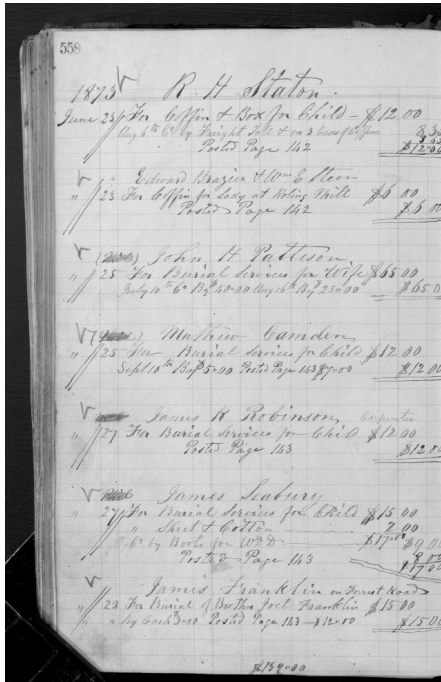 558
1873 R. H. Staton
June 23 For Coffin & Box for Child — $12.00
Aug 6th Cr by Freight Toll & on 3 Cases Coffins 8.30
Posted Page 142 $12.00
" Edward Brazier & Wm E.
" 23 For Coffin for Lady at Roling Mill $6 00
Posted Page 142 $6 00
John H Pattison
" 25 For Burial Services for Wife $65 00
July 10th Cr By $40=00 Aug 16th By $25=00 $65 0
Mathew Camden
" 25 For Burial Services for Child $12 00
Sept 10th By $5=00 Postd Page 143 $7=00 $12 00
James H Robinson Carpenter
" 27 For Burial Services for Child $12 00
Posted Page 143 $12 00
James Seabury
" 27 For Burial Services for Child $15 00
" Sheet & Cotton 2 00
Cr by Boots for $17=00 $9 00
Posted Page 143 8 00
$17 00
James Franklin on Forrest Road
" 28 For Burial of Brother Joel Franklin $15 00
" By Cash 3=00 Posted Page 143 — $12=00 $15 00
$139=00